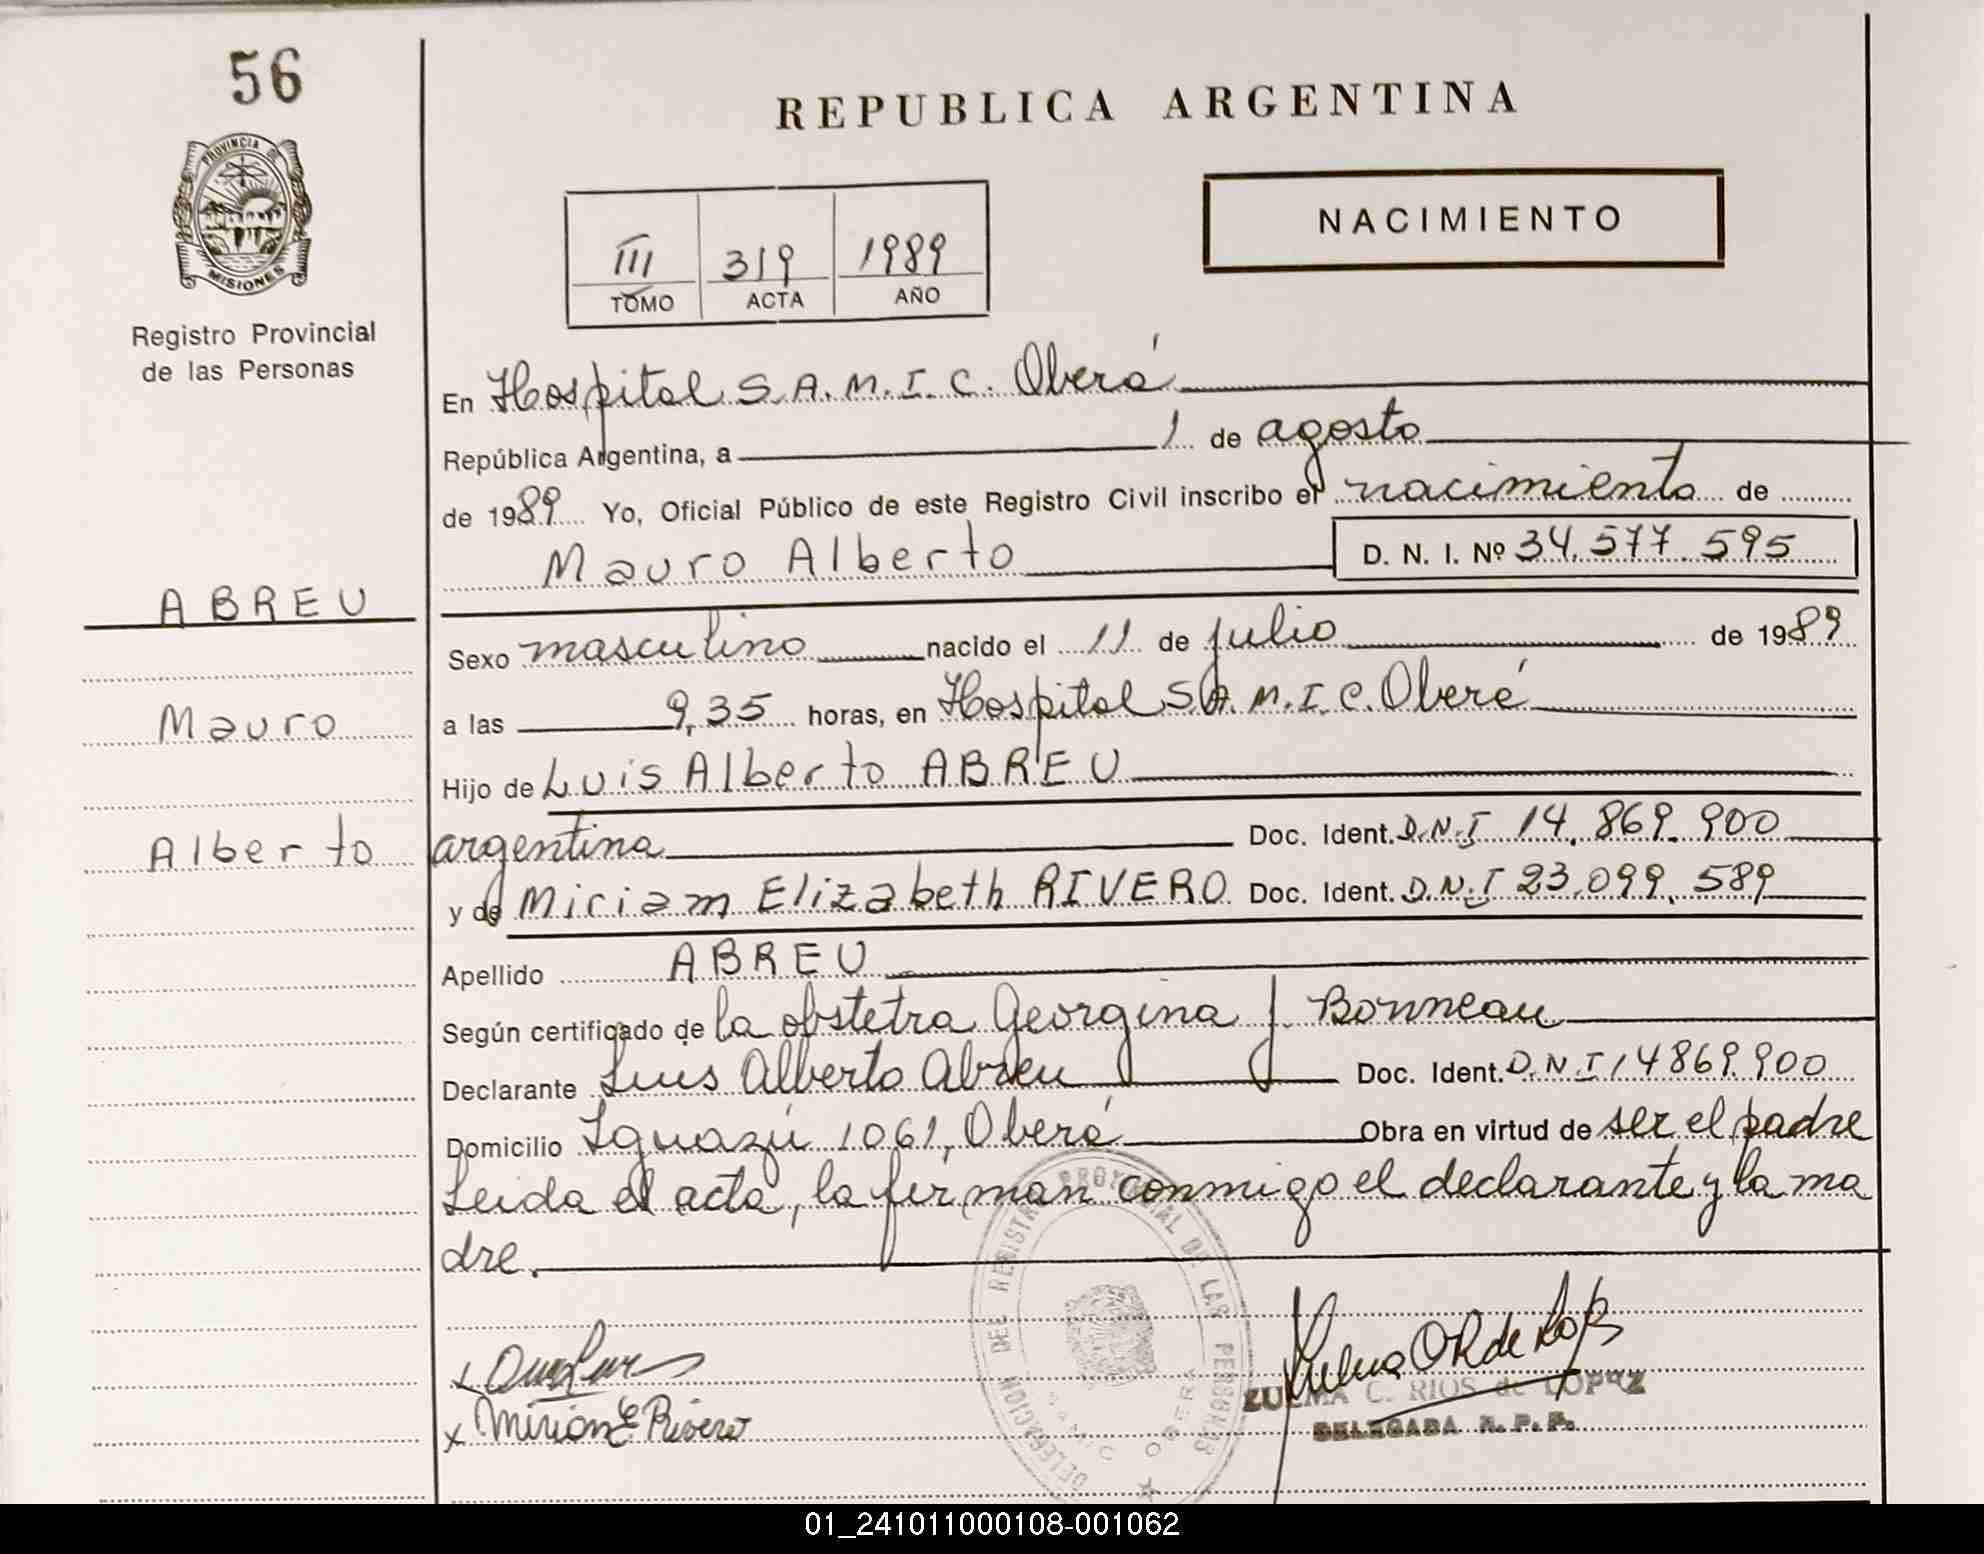 56
REPUBLICA ARGENTINA
PROVINCIA DE
MISIONES
NACIMIENTO
III 319 1989
TOMO ACTA AÑO
Registro Provincial
de las Personas
En Hospital S.A.M.I.C. Oberá
República Argentina, a 1 de agosto
de 1989 Yo, Oficial Público de este Registro Civil inscribo el nacimiento de
Mauro Alberto D. N. I. Nº 34.577.595
ABREU
Sexo masculino nacido el 11 de julio de 1989
Mauro
a las 9,35 horas, en Hospital S.A.M.I.C. Oberá
Hijo de Luis Alberto ABREU
Alberto
argentina Doc. Ident. D.N.I 14.869.900
y de Miriam Elizabeth RIVERO Doc. Ident. D.N.I 23.099.589
Apellido ABREU
Según certificado de la obstetra Georgina J. Bonneau
Declarante Luis Alberto Abreu Doc. Ident. D.N.I 14869.900
Domicilio Iguazú 1061, Oberá Obra en virtud de ser el padre
Leida el acta, la firman conmigo el declarante y la ma
dre.
DELEGACION DEL REGISTRO PROVINCIAL DE LAS PERSONAS
SAMIC OBERA
x Mirian E Rivero
ZULMA C. RIOS de LOPEZ
DELEGADA R. P. P.
01_241011000108-001062